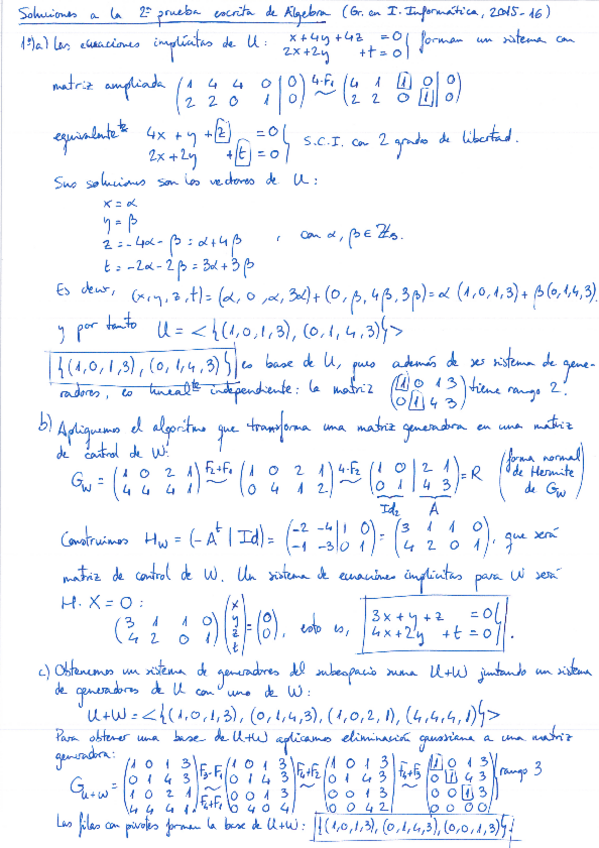 Soluciones a la 2ª prueba escrita de Álgebra (Gr. en I. Informática, 2015-16)
1º)a) Las ecuaciones implícitas de U: x+4y+4z =0 } forman un sistema con
2x+2y +t=0
matriz ampliada (1 4 4 0 | 0) 4·F₁ ~ (4 1 1 0 | 0)
(2 2 0 1 | 0) (2 2 0 1 | 0)
equivalente 4x+y+z =0 } S.C.I. con 2 grados de libertad.
2x+2y +t=0
Sus soluciones son los vectores de U:
x=α
y=β
z=-4α-β=α+4β , con α, β∈ℤ₅.
t=-2α-2β=3α+3β
Es decir, (x,y,z,t)=(α,0,α,3α)+(0,β,4β,3β)=α(1,0,1,3)+β(0,1,4,3)
y por tanto U=<{(1,0,1,3), (0,1,4,3)}>
{(1,0,1,3), (0,1,4,3)} es base de U, pues además de ser sistema de gene-
radores, es linealte independiente: la matriz (1 0 1 3) tiene rango 2.
(0 1 4 3)
b) Apliquemos el algoritmo que transforma una matriz generadora en una matriz
de control de W:
G_W = (1 0 2 1) F₂+F₁ ~ (1 0 2 1) 4·F₂ ~ (1 0 | 2 1) = R (forma normal
(4 4 4 1) (0 4 1 2) (0 1 | 4 3) de Hermite
Id₂ A de G_W)
Construimos H_W = (-Aᵗ | Id) = (-2 -4 | 1 0) = (3 1 1 0), que será
(-1 -3 | 0 1) (4 2 0 1)
matriz de control de W. Un sistema de ecuaciones implícitas para W será
H·X=0:
(3 1 1 0) (x y z t) = (0), esto es, 3x+y+z =0 }
(4 2 0 1) (0) 4x+2y +t=0 }.
c) Obtenemos un sistema de generadores del subespacio suma U+W juntando un sistema
de generadores de U con uno de W:
U+W=<{(1,0,1,3), (0,1,4,3), (1,0,2,1), (4,4,4,1)}>
Para obtener una base de U+W aplicamos eliminación gaussiana a una matriz
generadora:
G_{U+W} = (1 0 1 3) F₃-F₁ ~ (1 0 1 3) F₄+F₂ ~ (1 0 1 3) F₄+F₃ ~ (1 0 1 3) rango 3
(0 1 4 3) F₄+F₁ (0 1 4 3) (0 1 4 3) (0 1 4 3)
(1 0 2 1) (0 0 1 3) (0 0 1 3) (0 0 1 3)
(4 4 4 1) (0 4 0 4) (0 0 4 2) (0 0 0 0)
Las filas con pivotes forman la base de U+W: {(1,0,1,3), (0,1,4,3), (0,0,1,3)}.